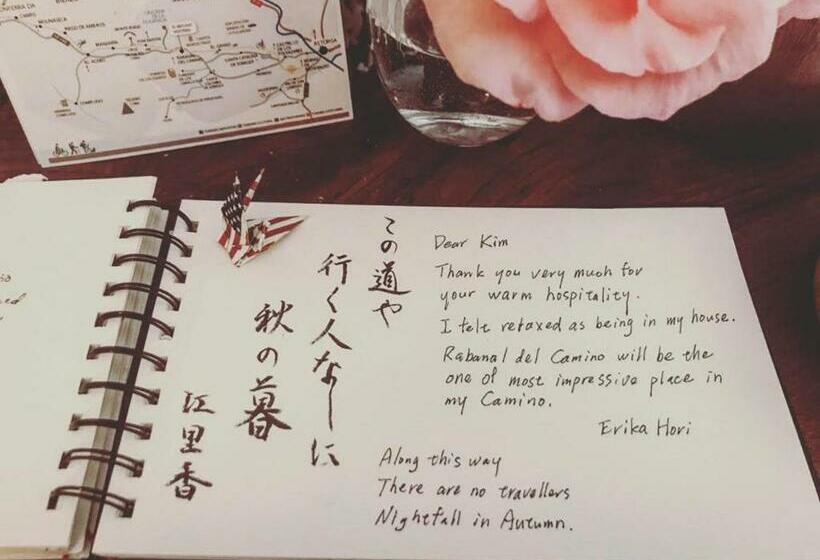 この道や
行く人なしに
秋の暮
江里香
Dear Kim
Thank you very much for
your warm hospitality.
I felt relaxed as being in my house.
Rabanal del Camino will be the
one of most impressive place in
my Camino.
Erika Hori
Along this way
There are no travellers
Nightfall in Autumn.
ASTORGA